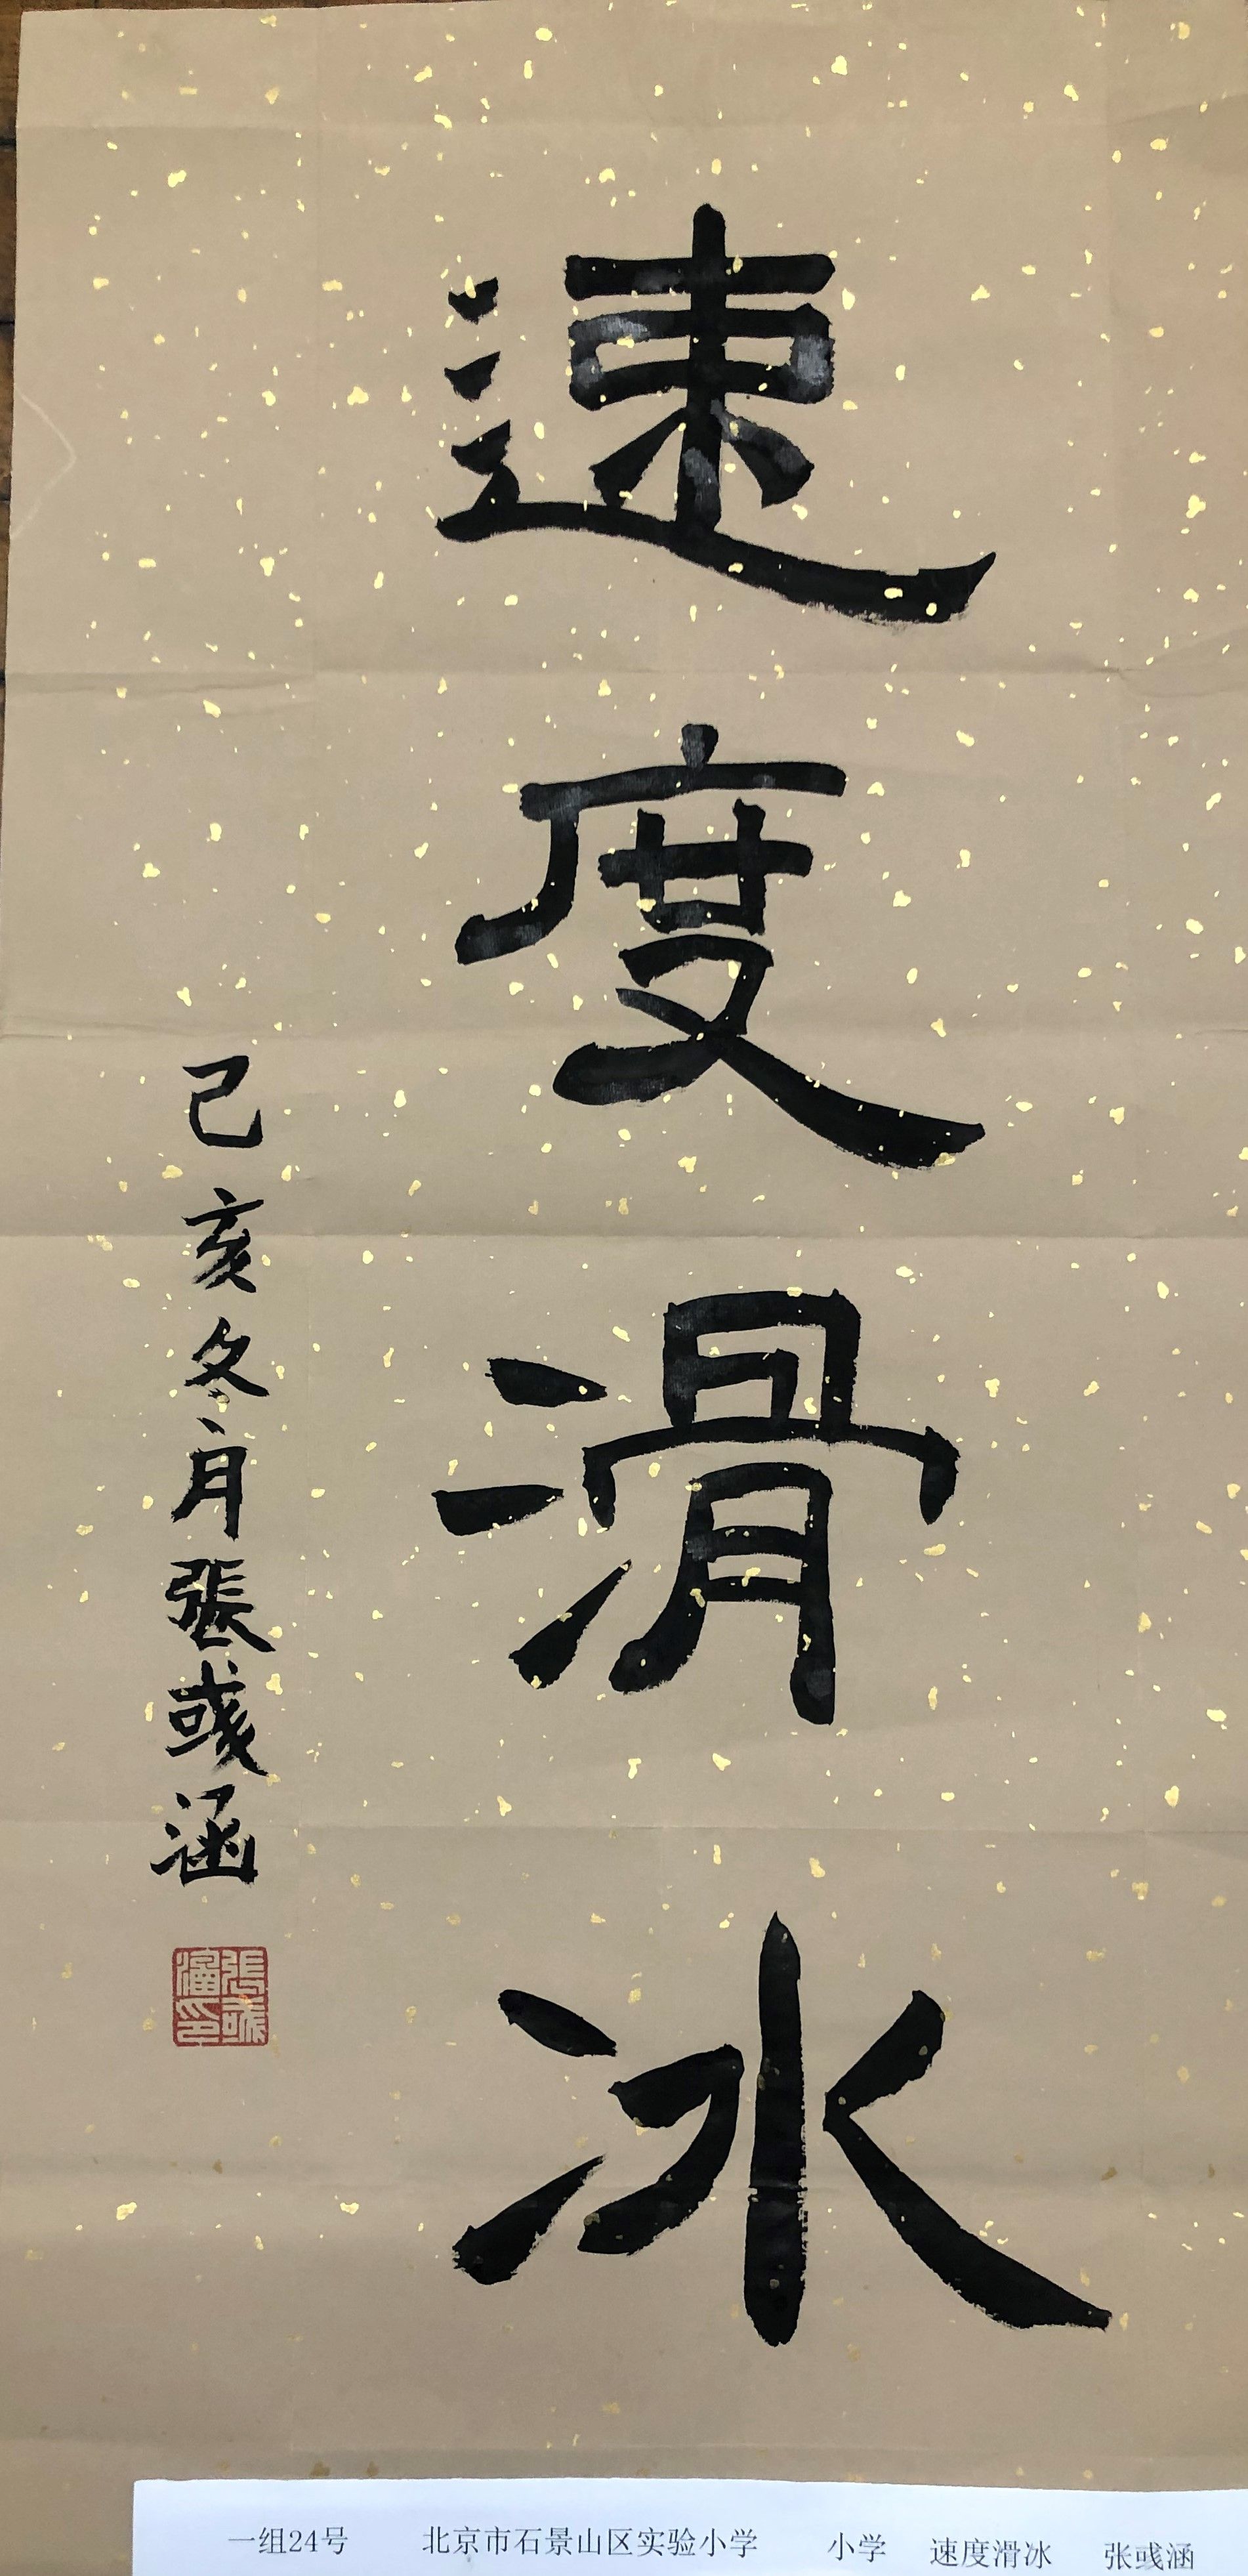 速度滑冰
己亥冬月張彧涵
張彧涵印
一组24号 北京市石景山区实验小学 小学 速度滑冰 张彧涵